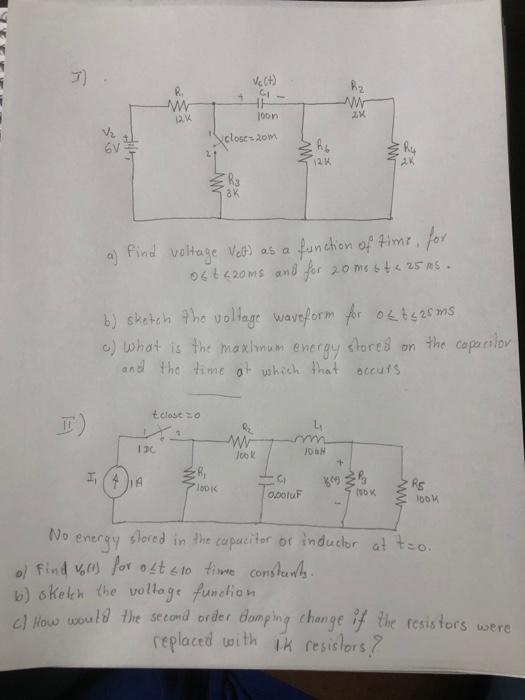 I)
Vc(t)
R1 + C1 - R2
12K 100n 2K
V2 + 1 close=20m R6 R4
6V - 2 12K 2K
R3
3K
a) Find voltage Vc(t) as a function of time, for
0≤t<20ms and for 20ms≤t<25ms.
b) sketch the voltage waveform for 0≤t≤25ms
c) What is the maximum energy stored on the capacitor
and the time at which that occurs
II) tclose=0
1 2 R2 L1
100K 100H
I1 1A R1 C1 + R3 R5
100K 0.001uF V0(t) 100K 100K
-
No energy stored in the capacitor or inductor at t=0.
a) Find V0(t) for 0≤t≤10 time constants.
b) sketch the voltage function
c) How would the second order damping change if the resistors were
replaced with 1K resistors?